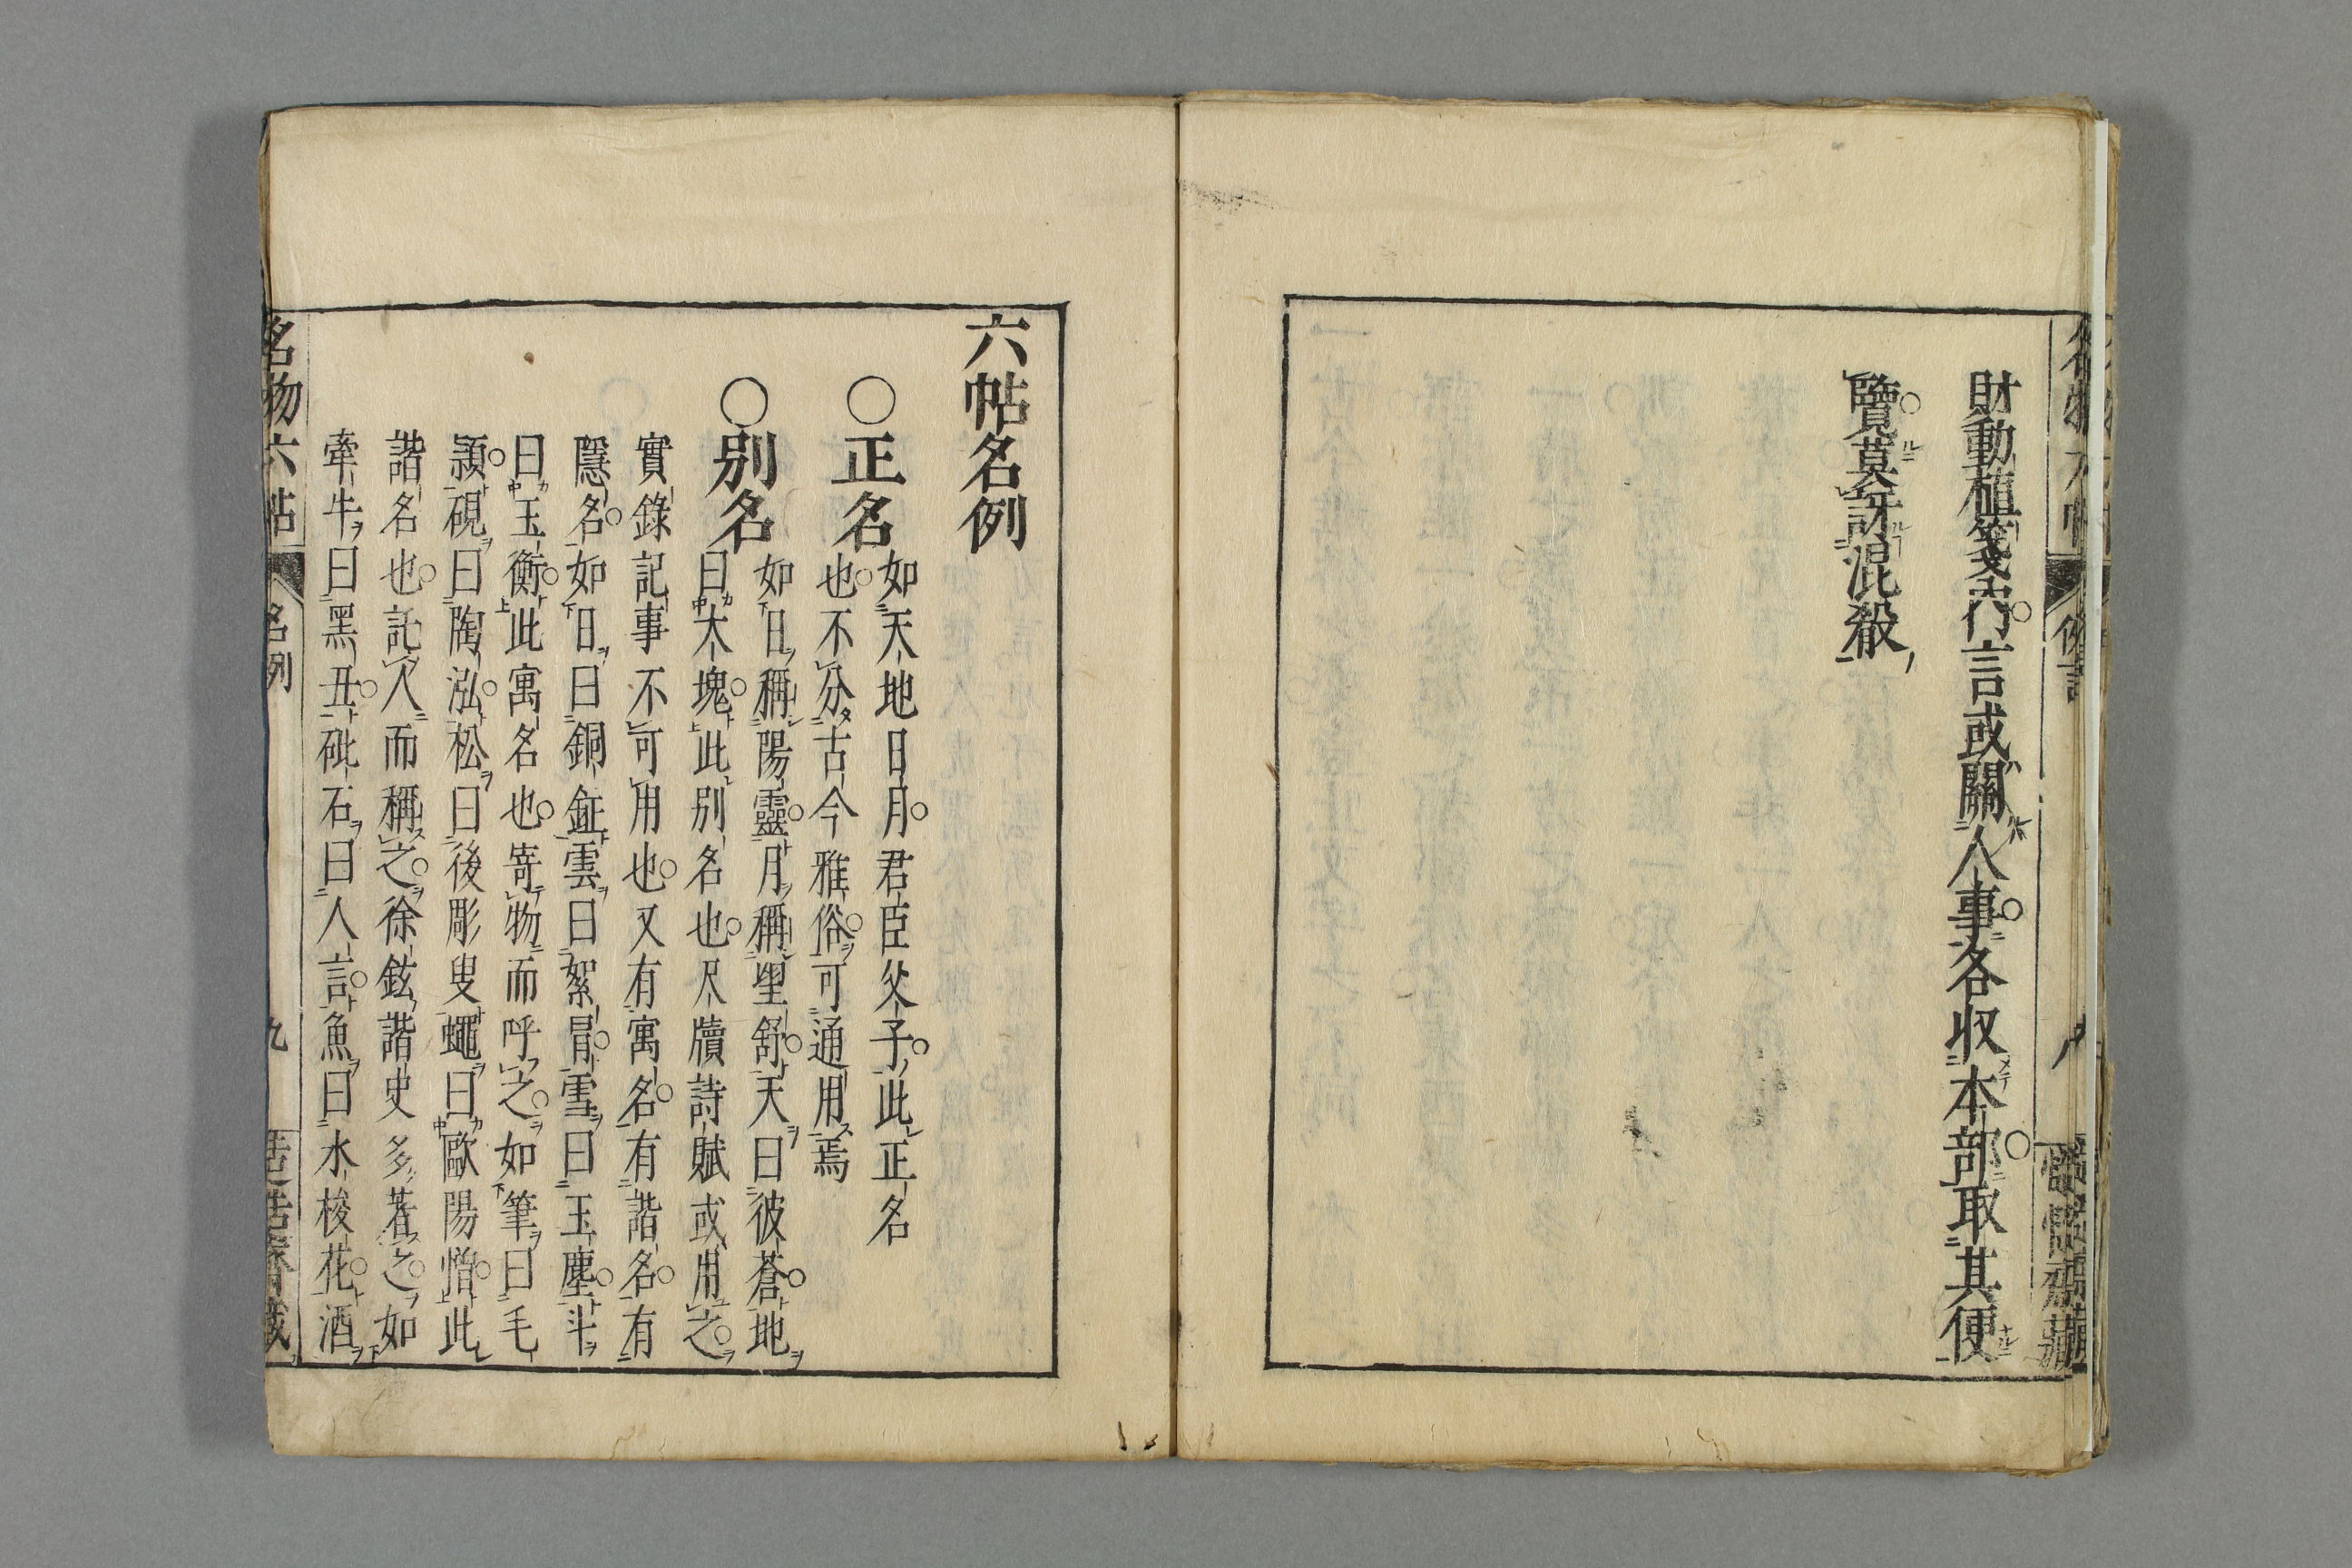 財動植箋內言或關人事各収本部取其便
覽莫訝混殽
六帖名例
○正名
如天地日月君臣父子此正名
也不分古今雅俗可通用焉
○別名
如日稱陽靈月稱望舒天曰彼蒼地
曰大塊此別名也尺牘詩賦或用之
實錄記事不可用也又有寓名有諧名有
隱名如日曰銅鉦雲曰絮冒雪曰玉塵斗
曰玉衡此寓名也寄物而呼之如筆曰毛
穎硯曰陶泓松曰後彫叟蠅曰歐陽憎此
諧名也託人而稱之徐鉉諧史多著之如
牽牛曰黑丑砒石曰人言魚曰水梭花酒
名物六帖
名例
九